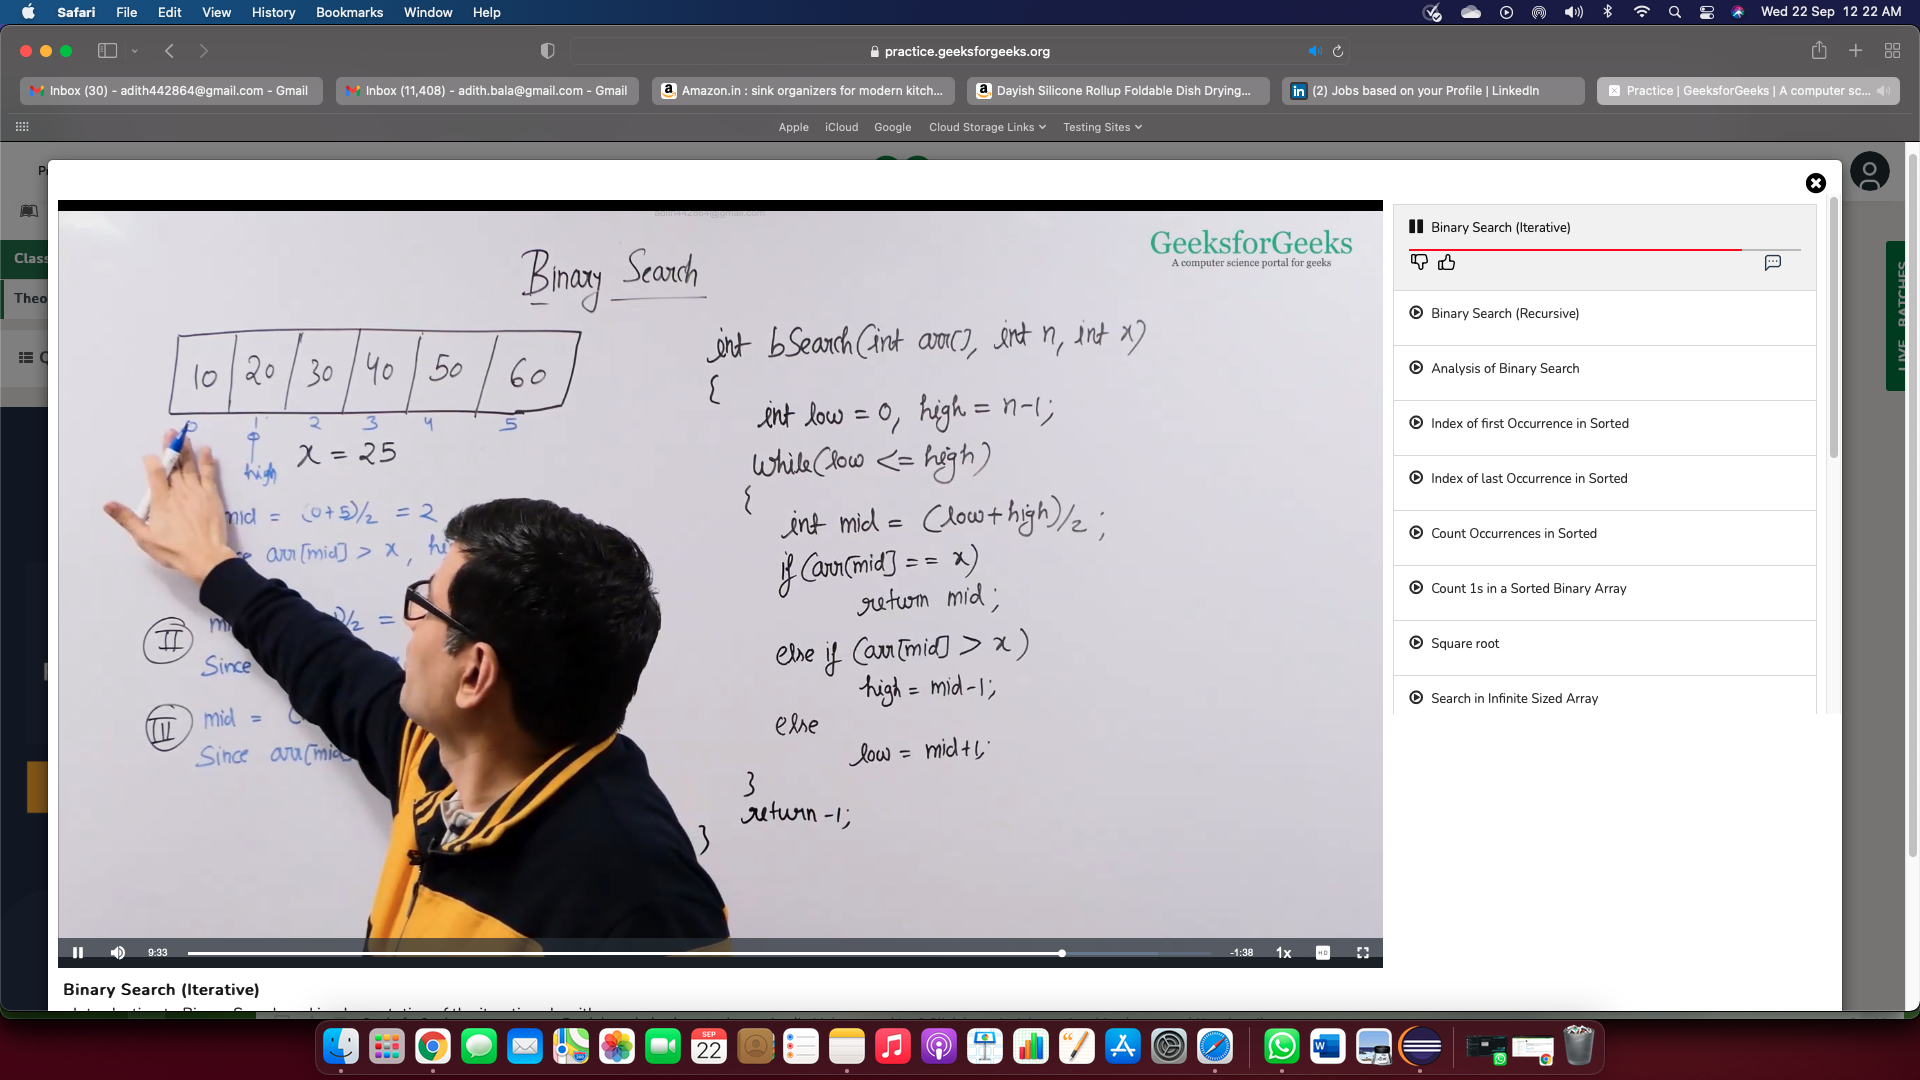 Safari File Edit View History Bookmarks Window Help
Wed 22 Sep 12 22 AM
practice.geeksforgeeks.org
Inbox (30) - adith442864@gmail.com - Gmail
Inbox (11,408) - adith.bala@gmail.com - Gmail
Amazon.in : sink organizers for modern kitch...
Dayish Silicone Rollup Foldable Dish Drying...
in (2) Jobs based on your Profile | LinkedIn
Practice | GeeksforGeeks | A computer sc...
Apple iCloud Google Cloud Storage Links Testing Sites
Clas
Theo
LIVE BATCHES
adith442864@gmail.com
GeeksforGeeks
A computer science portal for geeks
Binary Search
10 20 30 40 50 60
0 1 2 3 4 5
high
x = 25
mid = (0+5)/2 = 2
arr[mid] > x,
II
/2 =
Since
III mid =
Since arr[mid
int bSearch(int arr[], int n, int x)
{
int low = 0, high = n-1;
while(low <= high)
{
int mid = (low+high)/2;
if(arr[mid] == x)
return mid;
else if (arr[mid] > x)
high = mid-1;
else
low = mid+1;
}
return -1;
}
9:33
-1:38
1x
HD
Binary Search (Iterative)
Binary Search (Iterative)
Binary Search (Recursive)
Analysis of Binary Search
Index of first Occurrence in Sorted
Index of last Occurrence in Sorted
Count Occurrences in Sorted
Count 1s in a Sorted Binary Array
Square root
Search in Infinite Sized Array
SEP
22